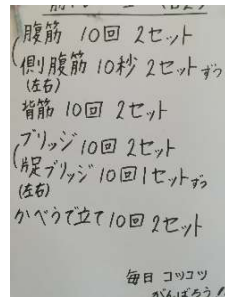 腹筋 10回 2セット
側腹筋 10秒 2セットずつ
(左右)
背筋 10回 2セット
ブリッジ 10回 2セット
片足ブリッジ 10回1セットずつ
(左右)
かべうで立て10回2セット
毎日 コツコツ
がんばろう!